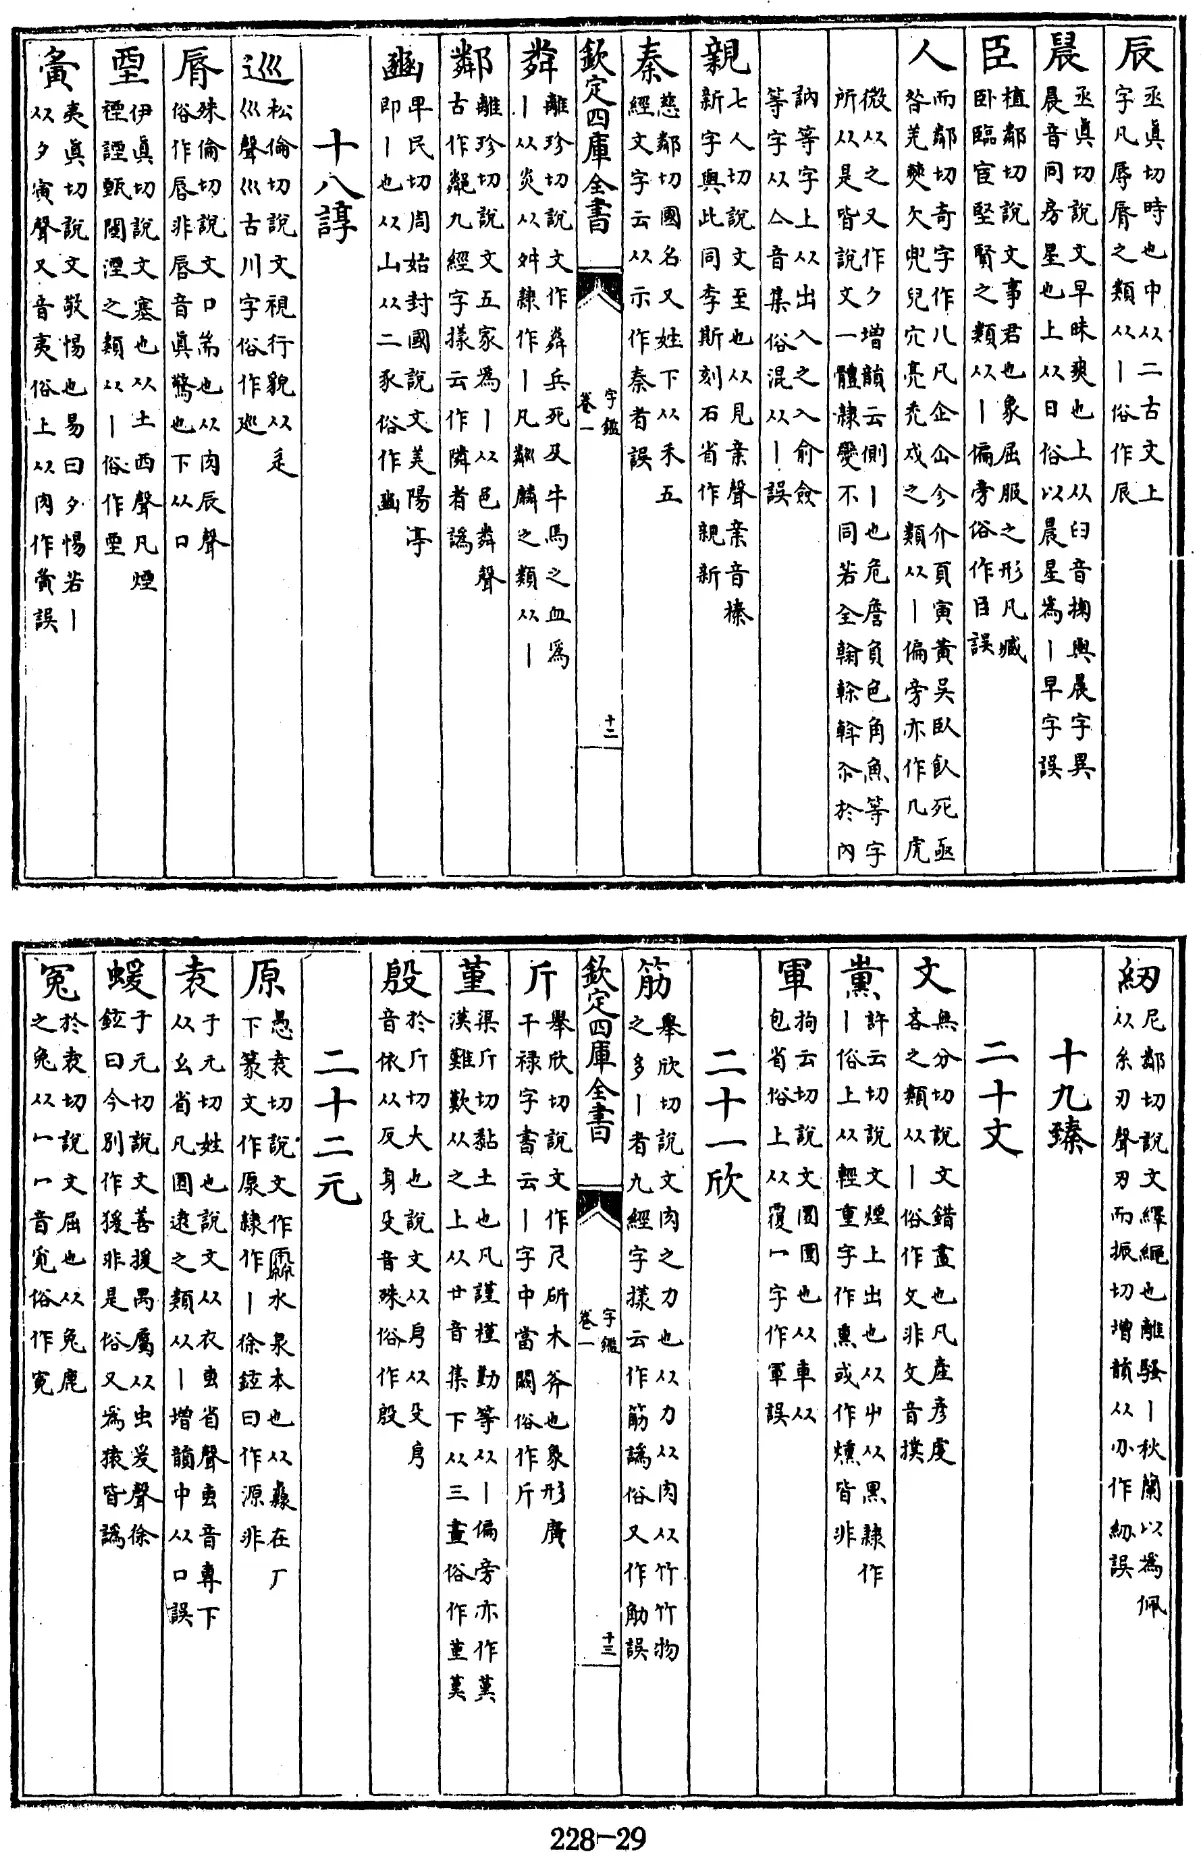 辰丞真切時也中从二古文上
字凡辱脣之類从丨俗作辰
晨丞真切說文早昧爽也上从臼音掬與晨字異
晨音同房星也上从日俗以晨星為丨早字誤
臣植鄰切說文事君也象屈服之形凡臧
卧臨宦堅賢之類从丨偏旁俗作誤
人而鄰切奇字作儿凡企仚今介頁寅黄吳臥飲死亟
咎羌僰欠兜兒穴亮禿戍之類从丨偏旁亦作几虎
微从之又作𠂊增韻云側丨也危詹負色角魚等字
所从是皆說文一體隷變不同若全翰榦斡於內
訥等字上从出入之入俞僉
等字从亼音集俗混从丨誤
親七人切說文至也从見亲聲亲音榛
新字與此同李斯刻石省作親新
秦慈鄰切國名又姓下从禾五
經文字云从示作秦者誤
欽定四庫全書
字鑑
卷一
十二
粦離珍切說文作㷠兵死及牛馬之血為
丨从炎从舛隷作丨凡粼麟之類从丨
鄰離珍切說文五家為丨从邑粦聲
古作九經字樣云作隣者譌
豳卑民切周始封國說文美陽亭
即丨也从山从二豕俗作
十八諄
巡松倫切說文視行貌从辵
巛聲巛古川字俗作廵
脣殊倫切說文口耑也从肉辰聲
俗作唇非唇音真驚也下从口
垔伊真切說文塞也从土西聲凡煙
禋諲甄闉湮之類从丨俗作垔
夤夷真切說文敬惕也易曰夕惕若丨
从夕寅聲又音夷俗上从肉作誤
紉尼鄰切說文繹繩也離騷丨秋蘭以為佩
从糸刃聲刃而振切增韻从刅作誤
十九臻
二十文
文無分切說文錯畫也凡產彥虔
吝之類从丨俗作攵非攵音撲
熏許云切說文煙上出也从屮从黑隷作
丨俗上从輕重字作熏或作燻皆非
軍拘云切說文圜圍也从車从
包省俗上从覆冖字作軍誤
二十一欣
筋舉欣切說文肉之力也从力从肉从竹竹物
之多丨者九經字樣云作筋譌俗又作觔誤
欽定四庫全書
字鑑
卷一
十三
斤舉欣切說文作斤斫木斧也象形廣
干祿字書云丨字中當闕俗作斤
堇渠斤切黏土也凡謹槿勤等从丨偏旁亦作𦰩
漢難歎从之上从廿音集下从三畫俗作菫
殷於斤切大也說文从㐆从殳㐆
音依从反身殳音殊俗作殷
二十二元
原愚袁切說文作厵水泉本也从灥在厂
下篆文作原隷作丨徐鉉曰作源非
袁于元切姓也說文从衣叀省聲叀音專下
从幺省凡園遠之類从丨增韻中从口誤
蝯于元切說文善援禺屬从虫爰聲徐
鉉曰今別作猨非是俗又為猿皆譌
冤於袁切說文屈也从兔鹿
之兔从冖冖音冪俗作寃
228-29